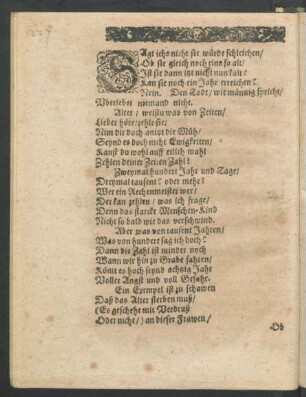 SAgt ichs nicht sie würde schleichen/
Ob sie gleich noch eins so alt/
Ist sie dann itzt nicht nun kalt?
Kan sie noch ein Jahr erreichen?
Nein. Den Todt/ wie männig spricht/
Uberlebet niemand nicht.
Alter/ weistu was von Zeiten/
Lieber höre/zehle sie/
Nim dir doch anitzt die Müh/
Seynd es doch nicht Ewigkeiten/
Kanst du wohl auff etlich mahl
Zehlen deiner Zeiten Zahl?
Zweymal hundert Jahr und Tage/
Dreymal tausent? oder mehr?
Wer ein Rechenmeister wer?
Der kan zehlen/ was ich frage/
Denn das starcke Menschen-Kind
Nicht so bald wie das verschwind.
Aber was von tausent Jahren/
Was von hundert sag ich doch?
Dann die Zahl ist minder noch
Wann wir hin zu Grabe fahren/
Kömt es hoch seynd achtzig Jahr
Voller Angst und voll Gefahr.
Ein Exempel ist zu schawen
Daß das Alter sterben muß/
(Es geschehe mit Verdruß
Oder nicht/) an dieser Frawen/
Ob